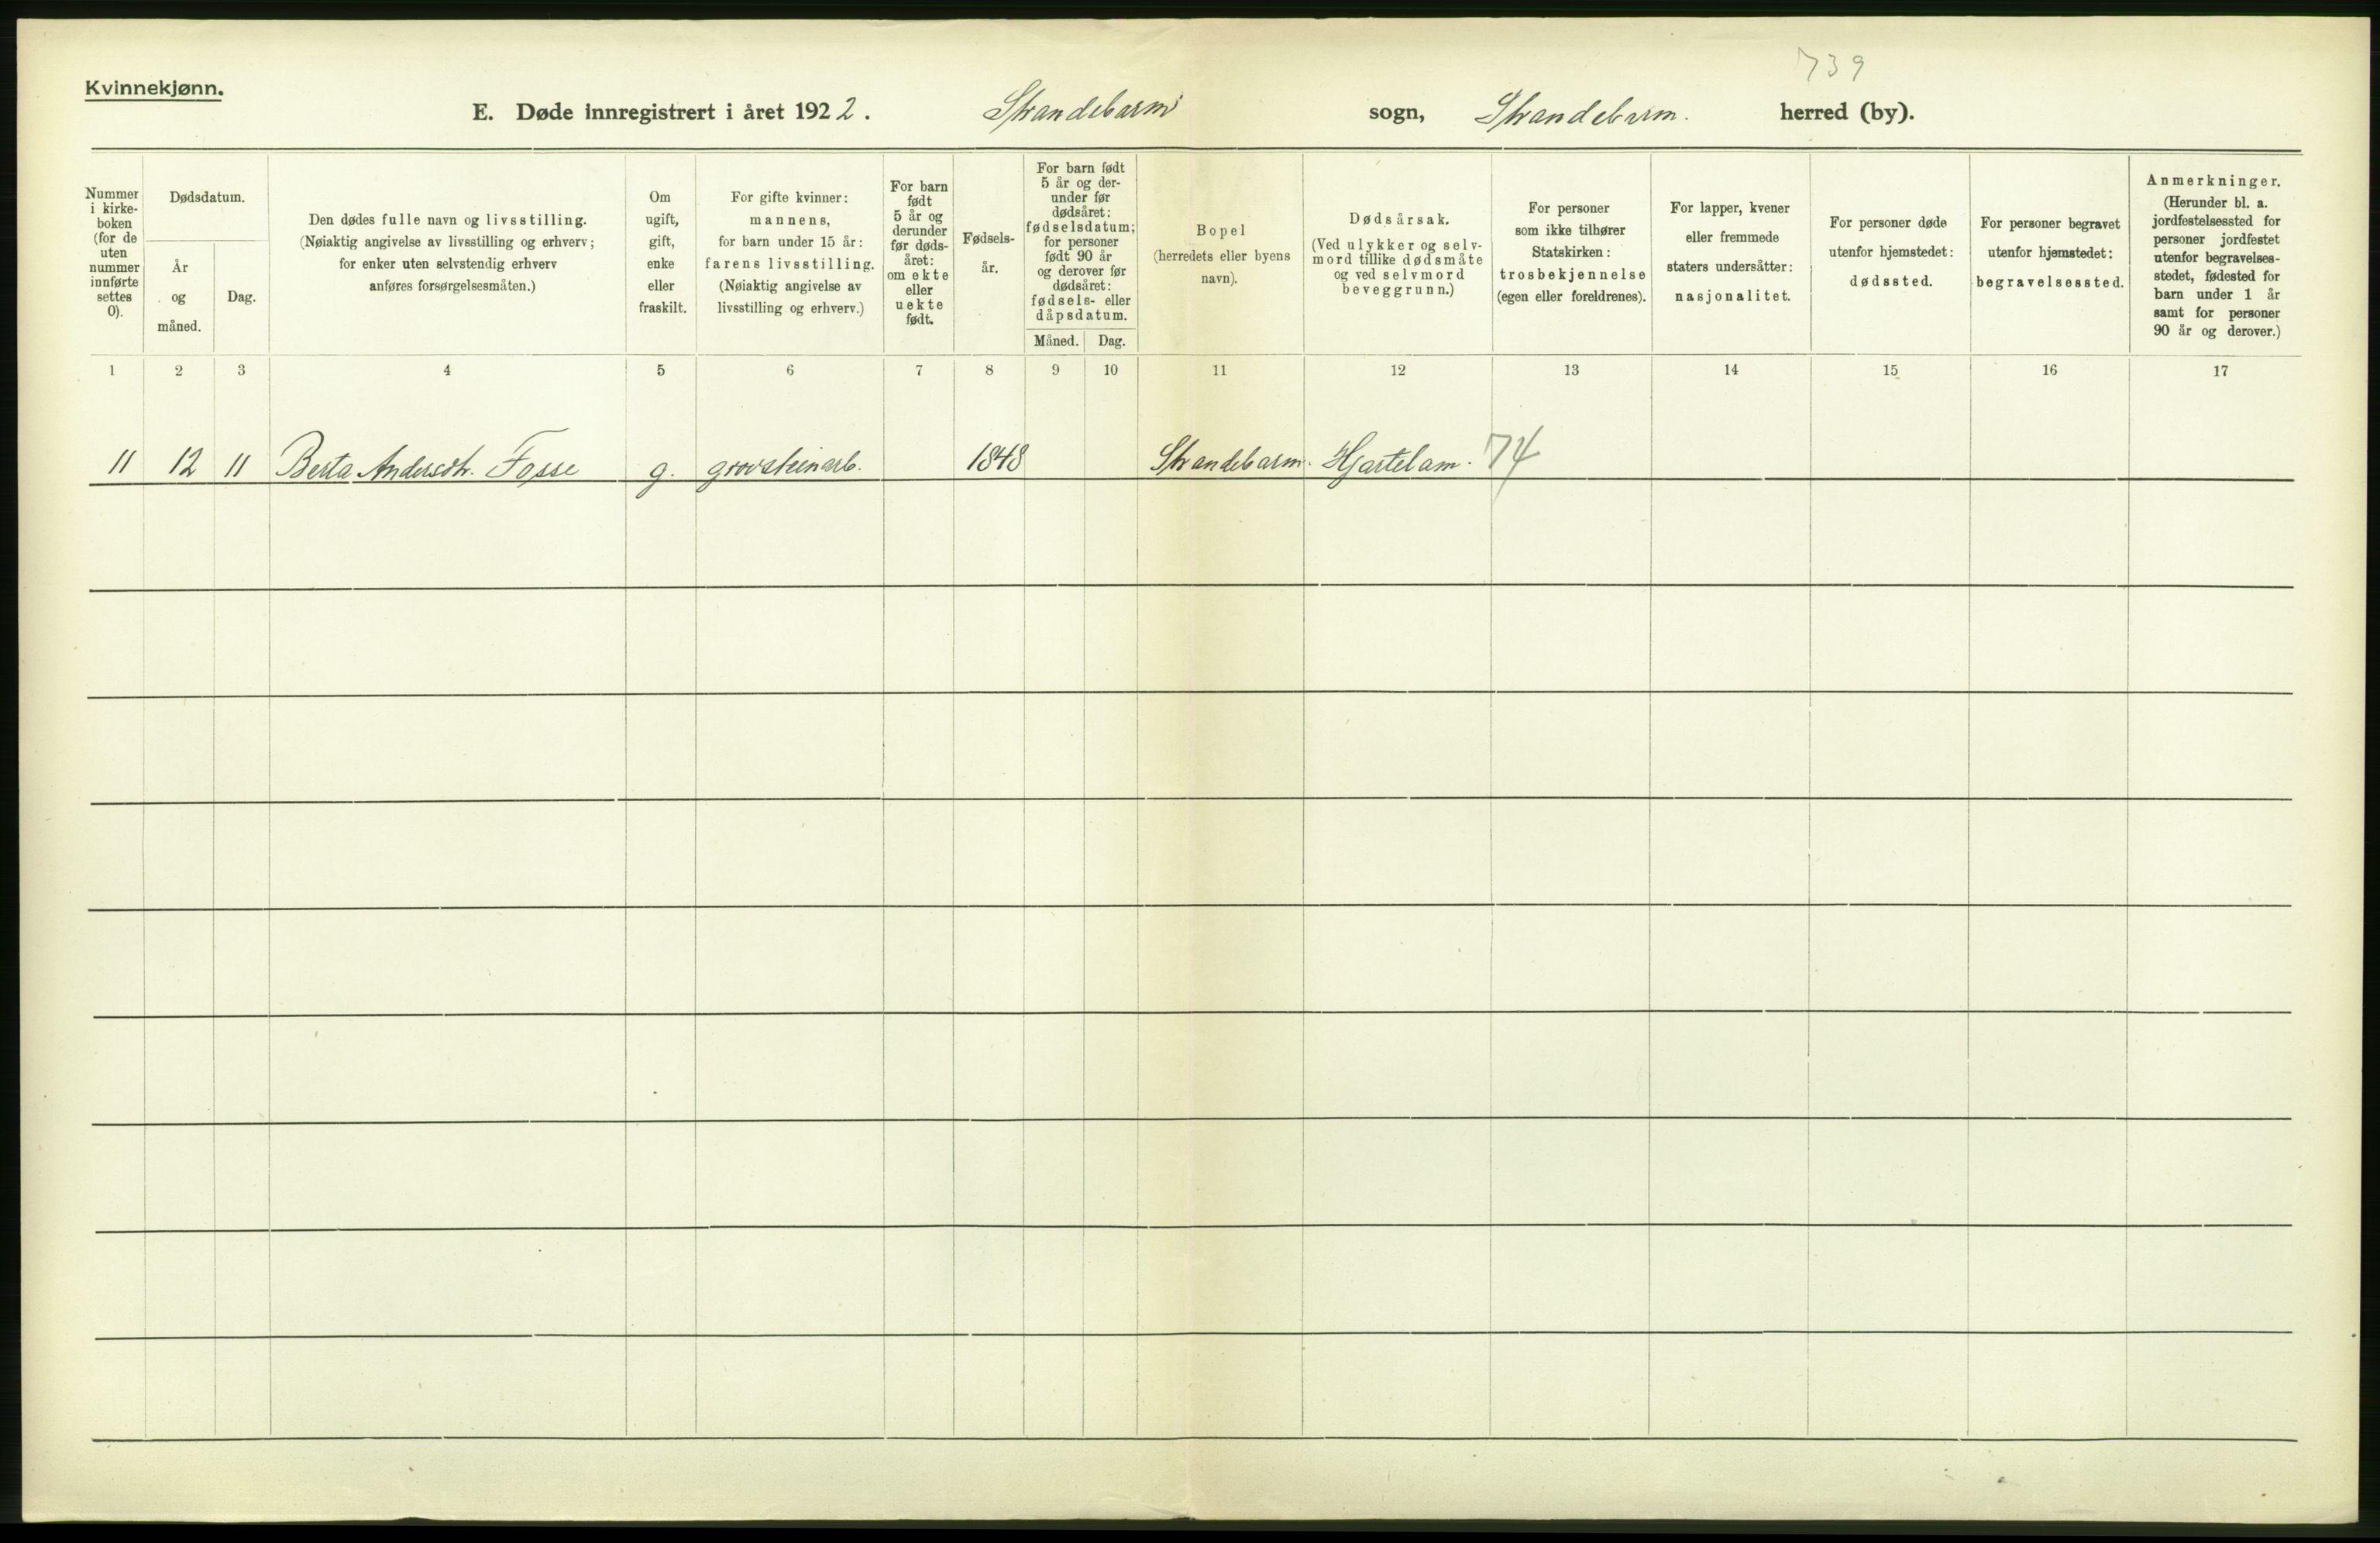 739
Kvinnekjønn.
E. Døde innregistrert i året 1922. Strandebarm sogn, Strandebarm. herred (by).
Nummer i kirke-
boken
(for de
uten
nummer
innførte
settes
0).
Dødsdatum.
År
og
måned.
Dag.
Den dødes fulle navn og livsstilling.
(Nøiaktig angivelse av livsstilling og erhverv;
for enker uten selvstendig erhverv
anføres forsørgelsesmåten.)
Om
ugift,
gift,
enke
eller
fraskilt.
For gifte kvinner:
mannens,
for barn under 15 år:
farens livsstilling.
(Nøiaktig angivelse av
livsstilling og erhverv.)
For barn
født
5 år og
derunder
før døds-
året:
om ekte
eller
uekte
født.
Fødsels-
år.
For barn født
5 år og der-
under før
dødsåret:
fødselsdatum;
for personer
født 90 år
og derover før
dødsåret:
fødsels- eller
dåpsdatum.
Måned. Dag.
Bopel
(herredets eller byens
navn).
Dødsårsak.
(Ved ulykker og selv-
mord tillike dødsmåte
og ved selvmord
beveggrunn.)
For personer
som ikke tilhører
Statskirken:
trosbekjennelse
(egen eller foreldrenes).
For lapper, kvener
eller fremmede
staters undersåtter:
nasjonalitet.
For personer døde
utenfor hjemstedet:
dødssted.
For personer begravet
utenfor hjemstedet:
begravelsessted.
Anmerkninger.
(Herunder bl. a.
jordfestelsessted for
personer jordfestet
utenfor begravelses-
stedet, fødested for
barn under 1 år
samt for personer
90 år og derover.)
1 2 3 4 5 6 7 8 9 10 11 12 13 14 15 16 17
11 12 11 Berta Andersdtr. Fosse g. grovsteinarb. 1848 Strandebarm. Hjartelam. 74